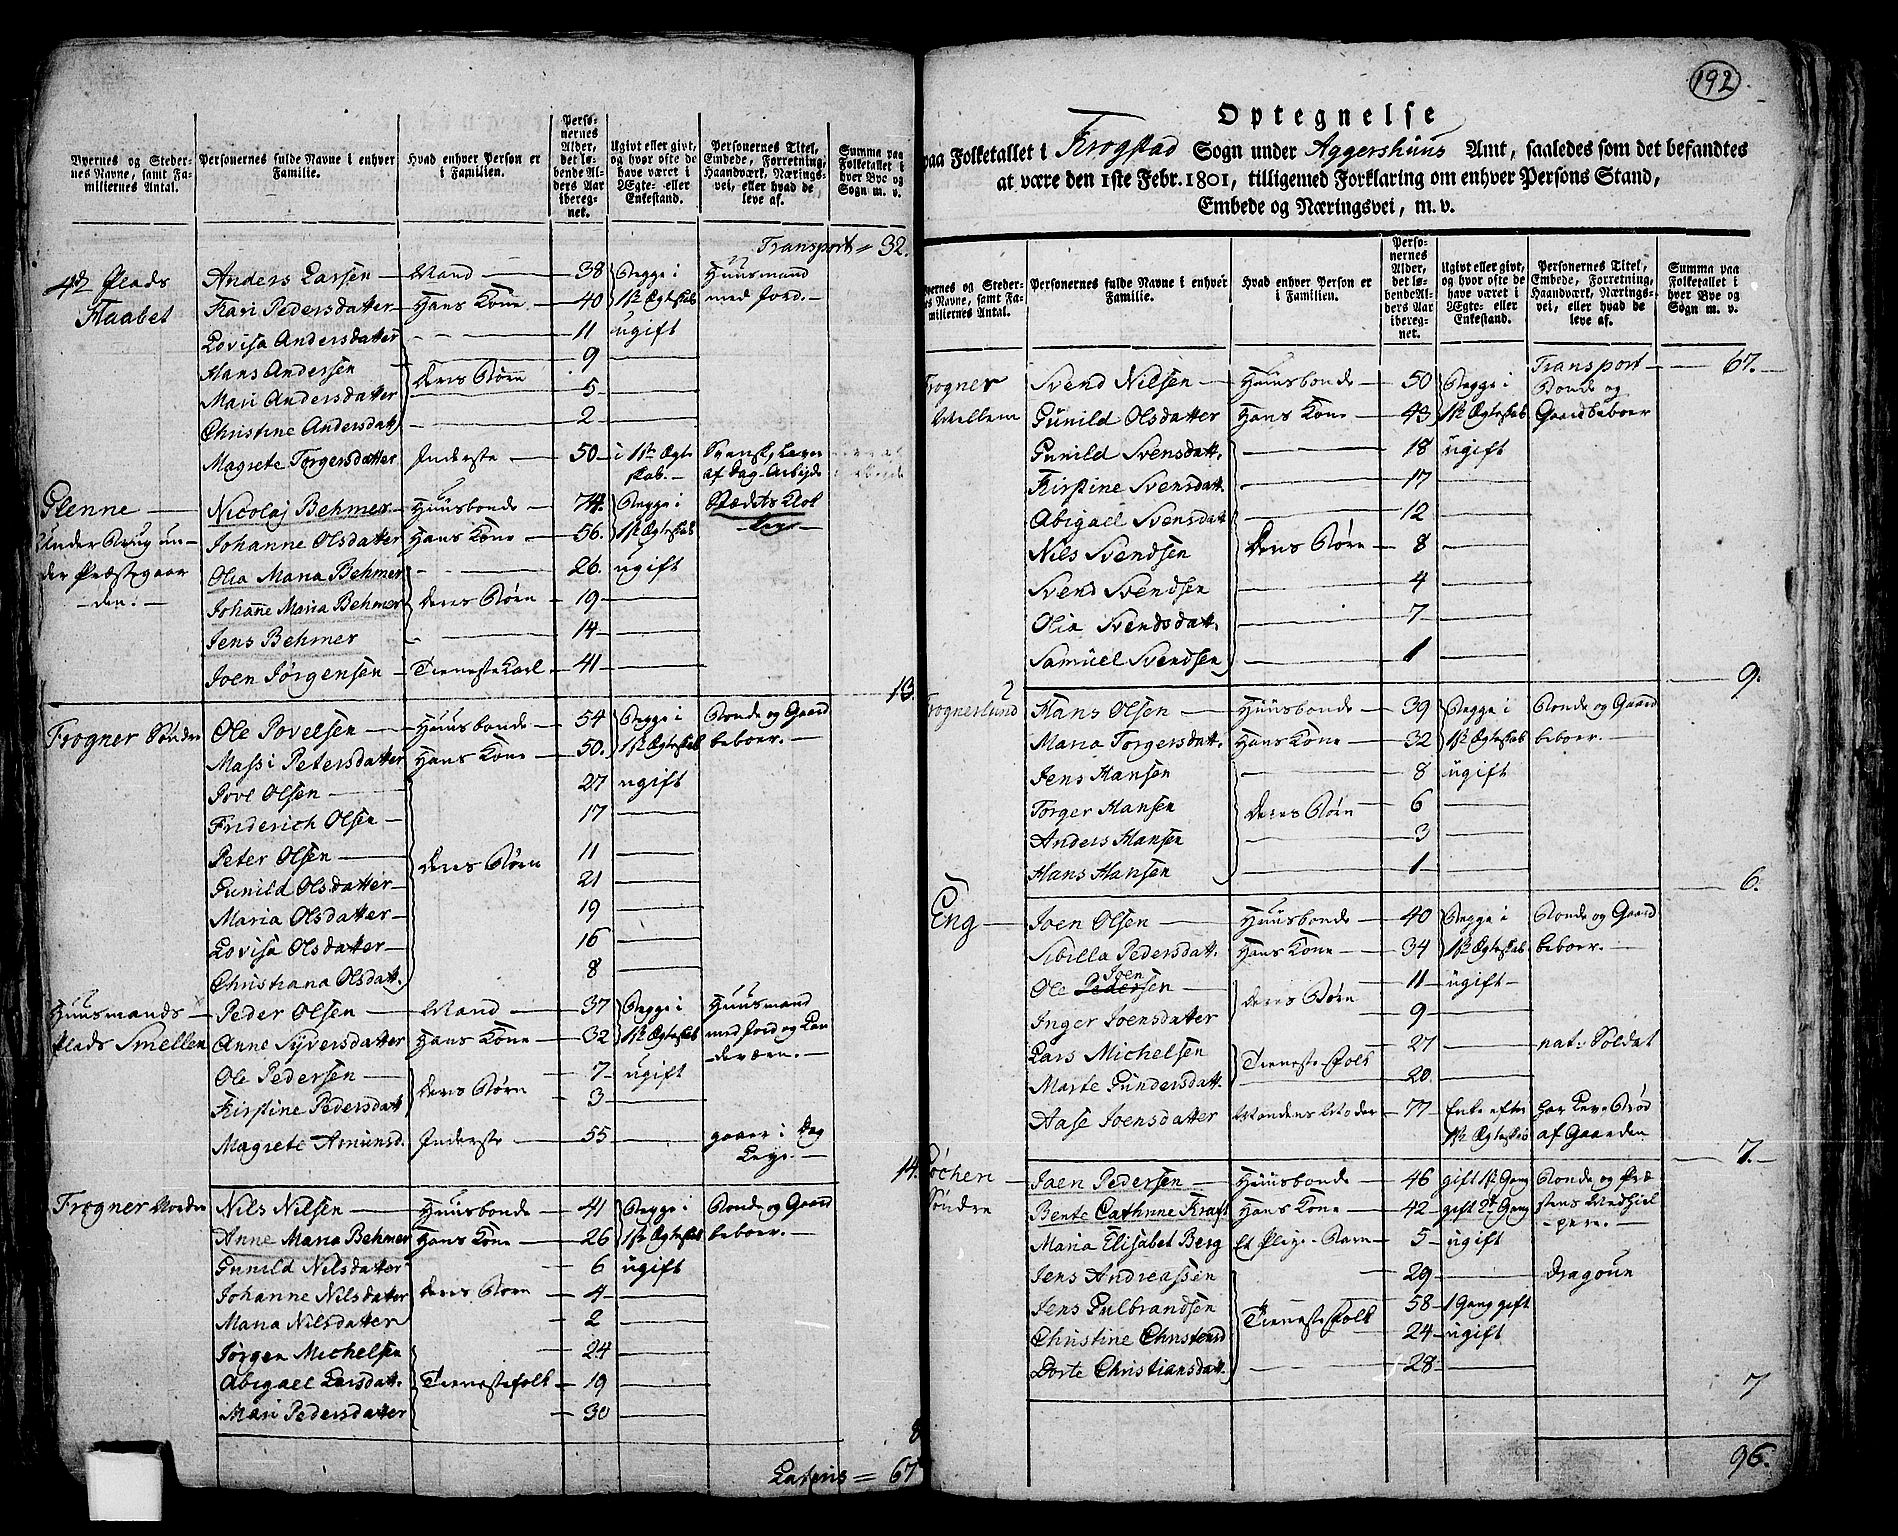 Byernes og Steder-
nes Navne, samt Fa-
miliernes Antal.
Personernes fulde Navne i enhver
Familie.
Hvad enhver Person er
i Familien.
Perso-
nernes
Alder,
det lø-
bende Al-
ders Aar
ibereg-
net.
Ugivt eller givt,
og hvor ofte de
have været i
Ægte- eller
Enkestand.
Personernes Titel,
Embede, Forretning,
Haandværk, Nærings-
vei, eller hvad de
leve af.
Summa paa
Folketallet i
hver Bye og
Sogn m. v.
Transport = 32.
Plads Anders Larsen Mand 38 Begge i Huusmand
Flaabet Kari Pedersdatter Hans Kone 40 1ste Ægteskab med Jord.
Lovisa Andersdatter 11 ugift
Hans Andersen Deres Børn 9
Mari Andersdatter 5
Christine Andersdatt 2
Magrete Torgersdatter Inderste 50 i 1ste Ægte Svensk, Lever
skab. af Dag-Arbejde
Glenne Nicolaj Behmer Huusbonde 74. Begge i
Under Brug un- Johanne Olsdatter Hans Kone 56. 1ste Ægteskab
der Præstegaar Olia Maria Behmer 26. ugift
den. Johane Maria Behmer Deres Børn 19
Jens Behmer 14
Joen Jørgensen Tienestekarl 41
13.
Frogner Søndre Ole Povelsen Huusbonde 54 Begge i Bonde og Gaard
Massi Petersdatter Hans Kone 50. 1ste Ægteskab beboer.
Povl Olsen 27 ugift
Friderich Olsen 17
Peter Olsen Deres Børn 11
Gunild Olsdatter 21
Maria Olsdatter 19
Lovisa Olsdatter 16
Christiana Olsdatt. 8
Huusmands Peder Olsen Mand 37 Begge i Huusmand
Plads Smellen Anne Syversdatter Hans Kone 32 1ste Ægteskab med Jord og
Ole Pedersen Deres Børn 7 ugift
Kirstine Pedersdatt 3
Magrete Amunsd. Inderste 55 gaaer i Dag
Leye.
14.
Frogner Nordre Nils Nilsen Huusbonde 41 Begge i Bonde og Gaard
Anne Maria Behmer Hans Kone 26 1ste Ægteskab beboer.
Gunild Nilsdatter 6 ugift
Johanne Nilsdatter Deres Børn 4
Maria Nilsdatter 2
Jørgen Michelsen 24
Abigael Larsdatt. Tienestefolk 19
Mari Pedersdatter 30
8
Lateris = 67
192
Optegnelse
paa Folketallet i Krogstad Sogn under Aggershuus Amt, saaledes som det befandtes
at være den 1ste Febr. 1801, tilligemed Forklaring om enhver Persons Stand,
Embede og Næringsvei, m. v.
Byernes og Steder-
nes Navne, samt Fa-
miliernes Antal.
Personernes fulde Navne i enhver
Familie.
Hvad enhver Person er
i Familien.
Perso-
nernes
Alder,
det lø-
bende Al-
ders Aar
ibereg-
net.
Ugivt eller givt,
og hvor ofte de
have været i
Ægte- eller
Enkestand.
Personernes Titel,
Embede, Forretning,
Haandværk, Nærings-
vei, eller hvad de
leve af.
Summa paa
Folketallet i
hver Bye og
Sogn m. v.
Transport 67.
Frogner Svend Nilsen Huusbonde 50 Begge i Bonde og
Mellem Gunild Olsdatter Hans Kone 43 1ste Ægteskab Gaardbeboer
Gunild Svensdatt. 18 ugift
Kirstine Svensdatt. 17
Abigael Svensdatt 12
Nils Svendsen Deres Børn 8
Svend Svendsen 4
Olia Svendsdatt. 7
Samuel Svendsen 1
9.
Frognerlund Hans Olsen Huusbonde 39 Begge i Bonde og Gaard
Maria Torgersdatt. Hans Kone 32 1ste Ægteskab beboer.
Jens Hansen 8 ugift
Torger Hansen Deres Børn 6
Anders Hansen 3
Hans Hansen 1
6.
Eng Joen Olsen Huusbonde 40 Begge i Bonde og Gaard
Sibilla Pedersdatt. Hans Kone 34 1ste Ægteskab beboer.
Joen
Ole Pedersen Deres Børn 11 ugift
Inger Joensdatter 9
Lars Michelsen Tieneste-Folk 27 nat: Soldat
Marte Gundersdatt. 20
Aase Joensdatter Mandens Moder 77 Enke efter har Leve-Brød
1ste Ægteskab af Gaarden
7.
Joen Pedersen Huusbonde 46 gift 1ste Gang Bonde og Præ
Søndre Bente Cathrine Kraft Hans Kone 42 gift 2den Gang stens Medhiel
Maria Elisabet Berg Et Pleye-Barn 5 ugift pere.
Jens Andreassen 29 Dragoun
Jens Gulbrandsen Tieneste Folk 58 1 Gang gift
Christine Christensd 24 ugift
Dorte Christiansdatt. 28
7
96.